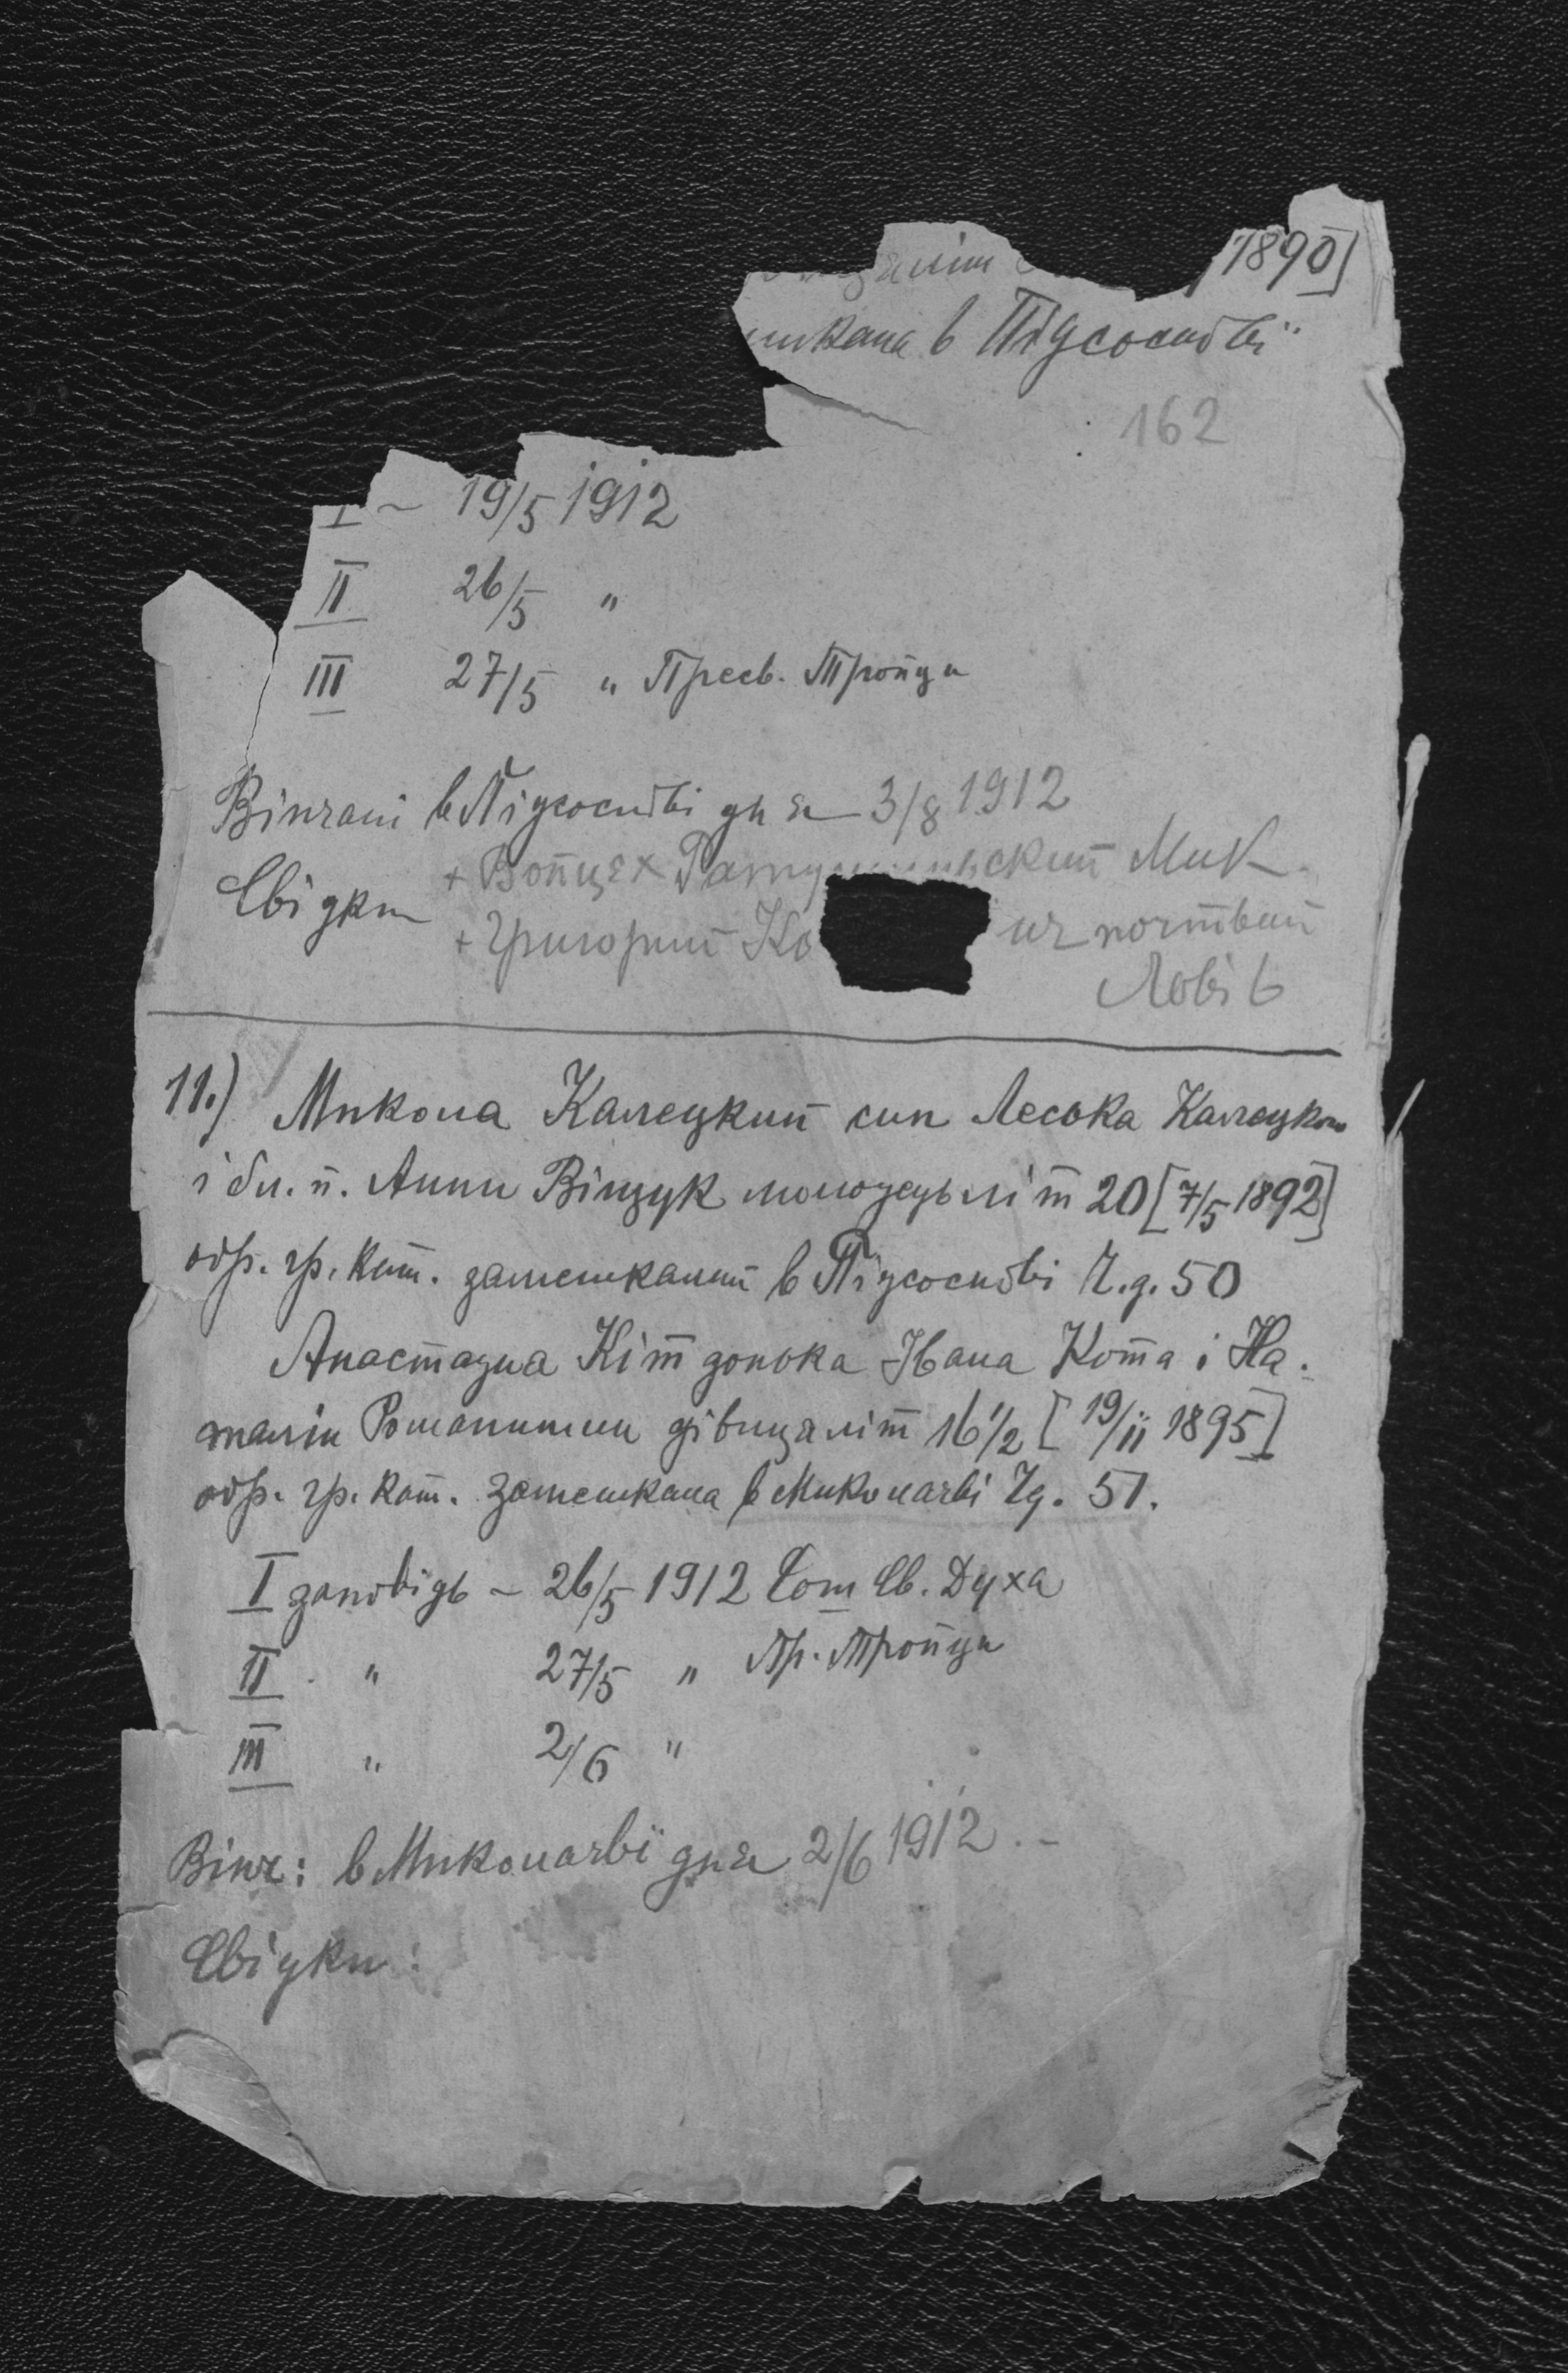 літ 1890]
шкана в Підсоснові
162
I ~ 19/5 1912
II 26/5 "
III 27/5 " Пресв. Тройци
Вінчані в Підсоснові дня 3/8 1912
Свідки + Войцех Мик.
+ Григорий Ко ич почтвий
Львів
11.) Микола Калецкий син Леська Калецкого
і бл. п. Анни Віщук молодець літ 20 [7/5 1892]
обр. гр. кат. замешканий в Підсоснові Ч.д. 50
Анастазиа Кіт донька Івана Кота і На-
талїи Романишин дївица літ 16 1/2 [19/11 1895]
обр. гр. кат. замешкана в Миколаєві Чд. 51.
I заповідь ~ 26/5 1912 Сош Св. Духа
II " 27/5 " Пр. Тройци
III " 2/6 "
Вінч: в Миколаєві дня 2/6 1912. -
Свідки: